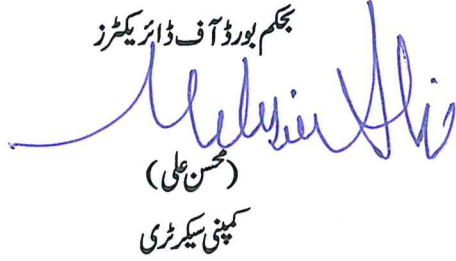 بحکم بورڈ آف ڈائریکٹرز
Mohsin Ali
(محسن علی)
کمپنی سیکرٹری